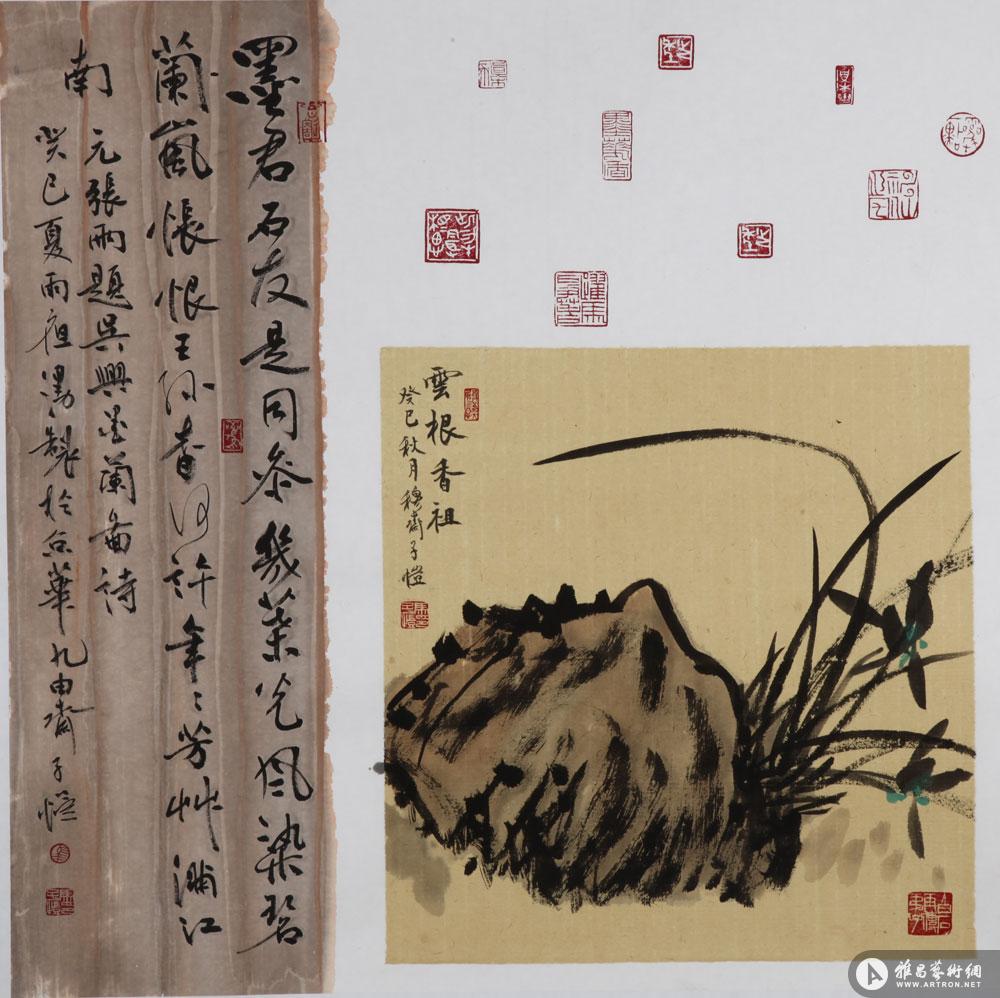 墨君石友是同參幾葉光風染碧
蘭嵐悵恨王孫春何許年〻芳艸滿江
南
元張雨題吳興墨蘭圖詩
癸巳夏雨夜漫製於京華九由齋子愷
雲根香祖
癸巳秋月穆齋子愷
雅昌藝術網
WWW.ARTRON.NET